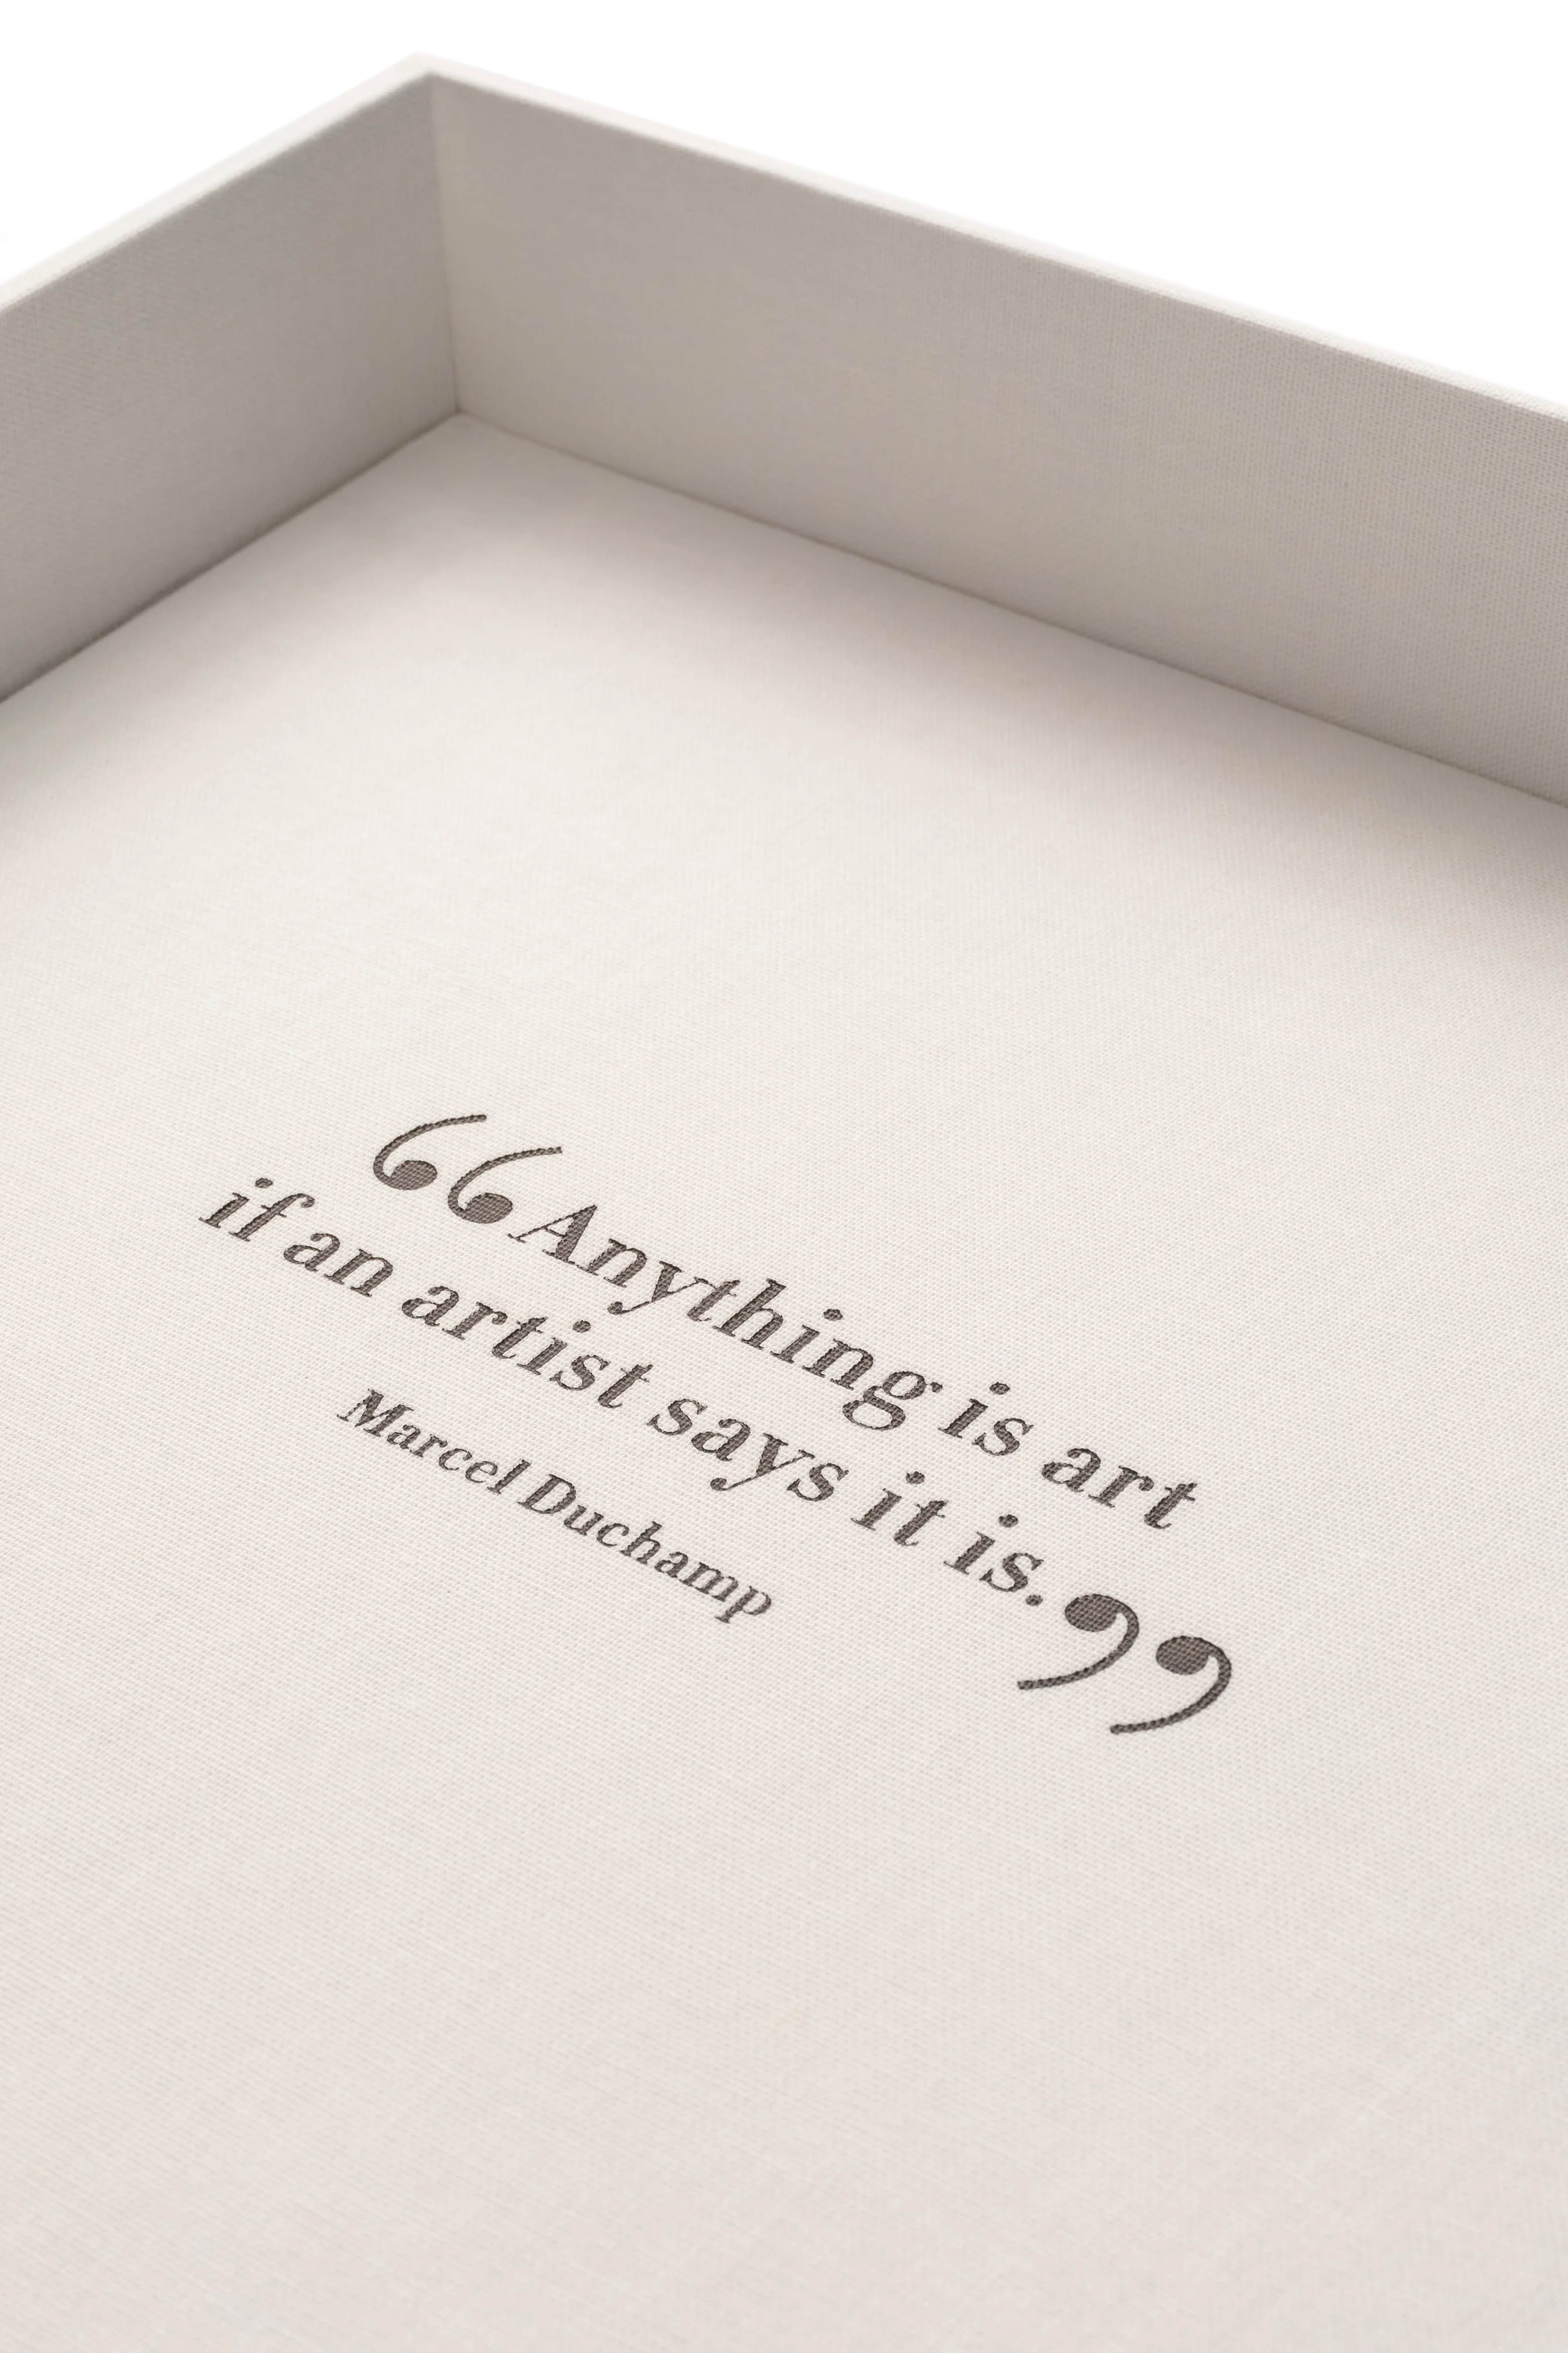 “Anything is art
if an artist says it is.”
Marcel Duchamp